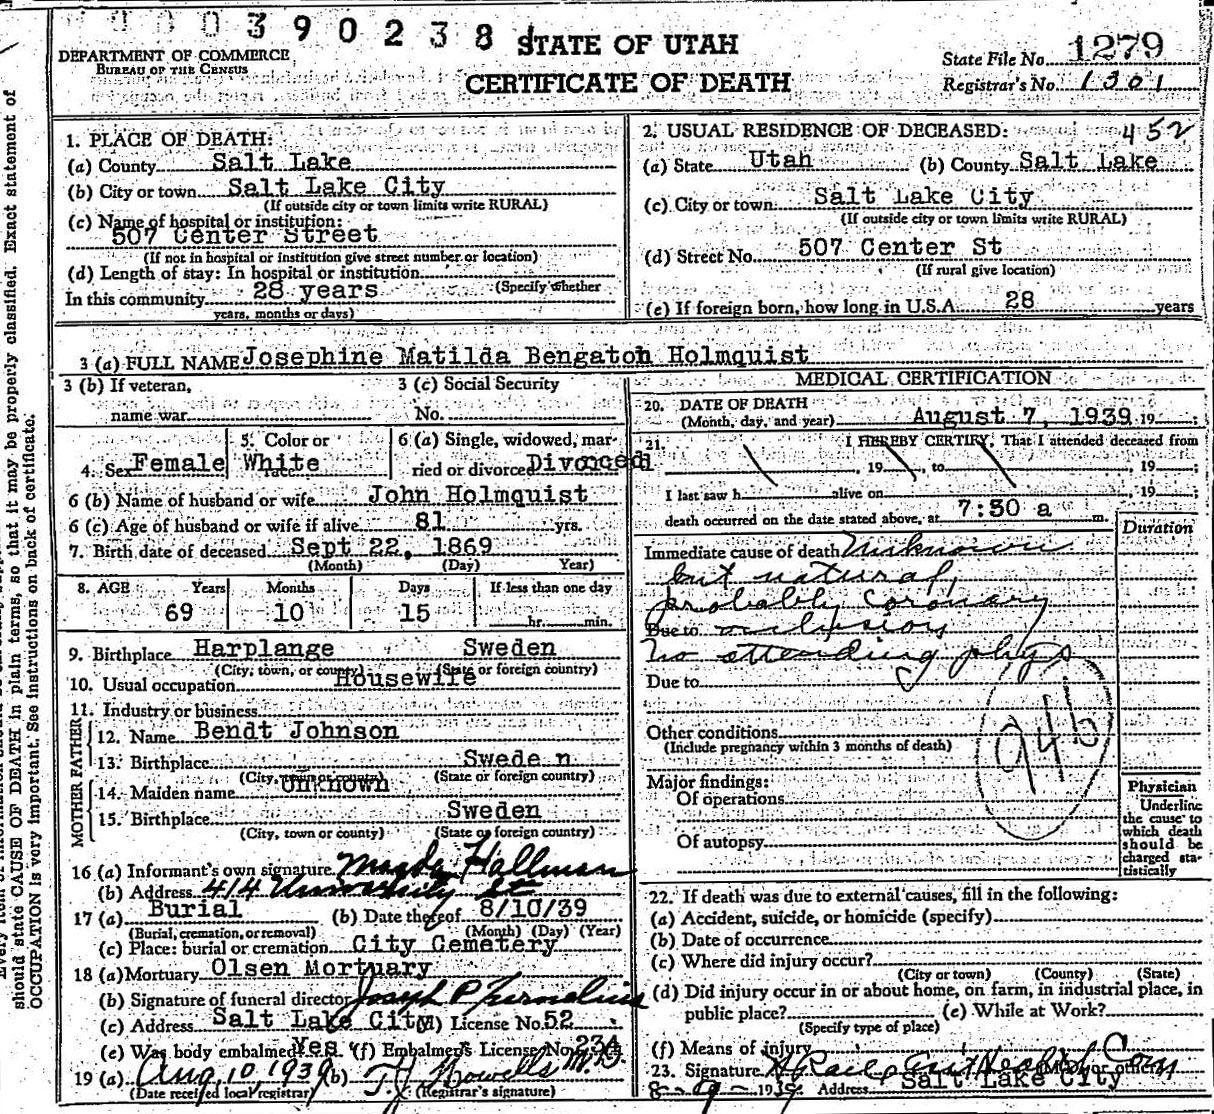 0 0 3 9 0 2 3 8
STATE OF UTAH
CERTIFICATE OF DEATH
DEPARTMENT OF COMMERCE
BUREAU OF THE CENSUS
State File No. 1279
Registrar's No. 1301
1. PLACE OF DEATH:
(a) County Salt Lake
(b) City or town Salt Lake City
(If outside city or town limits write RURAL)
(c) Name of hospital or institution:
507 Center Street
(If not in hospital or institution give street number or location)
(d) Length of stay: In hospital or institution
In this community 28 years (Specify whether
years, months or days)
2. USUAL RESIDENCE OF DECEASED: 452
(a) State Utah (b) County Salt Lake
(c) City or town Salt Lake City
(If outside city or town limits write RURAL)
(d) Street No. 507 Center St
(If rural give location)
(e) If foreign born, how long in U.S.A. 28 years
3 (a) FULL NAME Josephine Matilda Bengaton Holmquist
3 (b) If veteran, 3 (c) Social Security
name war No.
4. Sex Female 5. Color or race White 6 (a) Single, widowed, married or divorced Divorced
6 (b) Name of husband or wife John Holmquist
6 (c) Age of husband or wife if alive 81 yrs.
7. Birth date of deceased Sept 22, 1869
(Month) (Day) Year)
8. AGE Years Months Days If less than one day
69 10 15 hr. min.
9. Birthplace Harplange Sweden
(City, town, or county) (State or foreign country)
10. Usual occupation Housewife
11. Industry or business
FATHER
12. Name Bendt Johnson
13. Birthplace Swede n
(City, town or county) (State or foreign country)
MOTHER
14. Maiden name Unknown
15. Birthplace Sweden
(City, town or county) (State or foreign country)
16 (a) Informant's own signature Hallman
(b) Address 414 University St
17 (a) Burial (b) Date thereof 8/10/39
(Burial, cremation, or removal) (Month) (Day) (Year)
(c) Place: burial or cremation City Cemetery
18 (a) Mortuary Olsen Mortuary
(b) Signature of funeral director Joseph P
(c) Address Salt Lake City (d) License No. 52
(e) Was body embalmed Yes (f) Embalmer's License No. 23A
19 (a) Aug, 10, 1939 (b) T. J. Howells M.D.
(Date received local registrar) (Registrar's signature)
MEDICAL CERTIFICATION
20. DATE OF DEATH
(Month, day, and year) August 7, 1939 19 ;
21. I HEREBY CERTIFY, That I attended deceased from
, 19 , to , 19 ;
I last saw h alive on , 19 ;
death occurred on the date stated above, at 7:30 a m.
Duration
Immediate cause of death Unknown
but natural,
probably coronary
Due to occlusion
No attending phys
Due to
94b
Other conditions
(Include pregnancy within 3 months of death)
Major findings:
Of operations
Of autopsy
Physician
Underline
the cause to
which death
should be
charged sta-
tistically
22. If death was due to external causes, fill in the following:
(a) Accident, suicide, or homicide (specify)
(b) Date of occurrence
(c) Where did injury occur?
(City or town) (County) (State)
(d) Did injury occur in or about home, on farm, in industrial place, in
public place? (e) While at Work?
(Specify type of place)
(f) Means of injury
23. Signature Health Com (M.D. or other)
8-9-1939 Address Salt Lake City
should state CAUSE OF DEATH in plain terms, so that it may be properly classified. Exact statement of
OCCUPATION is very important. See instructions on back of certificate.